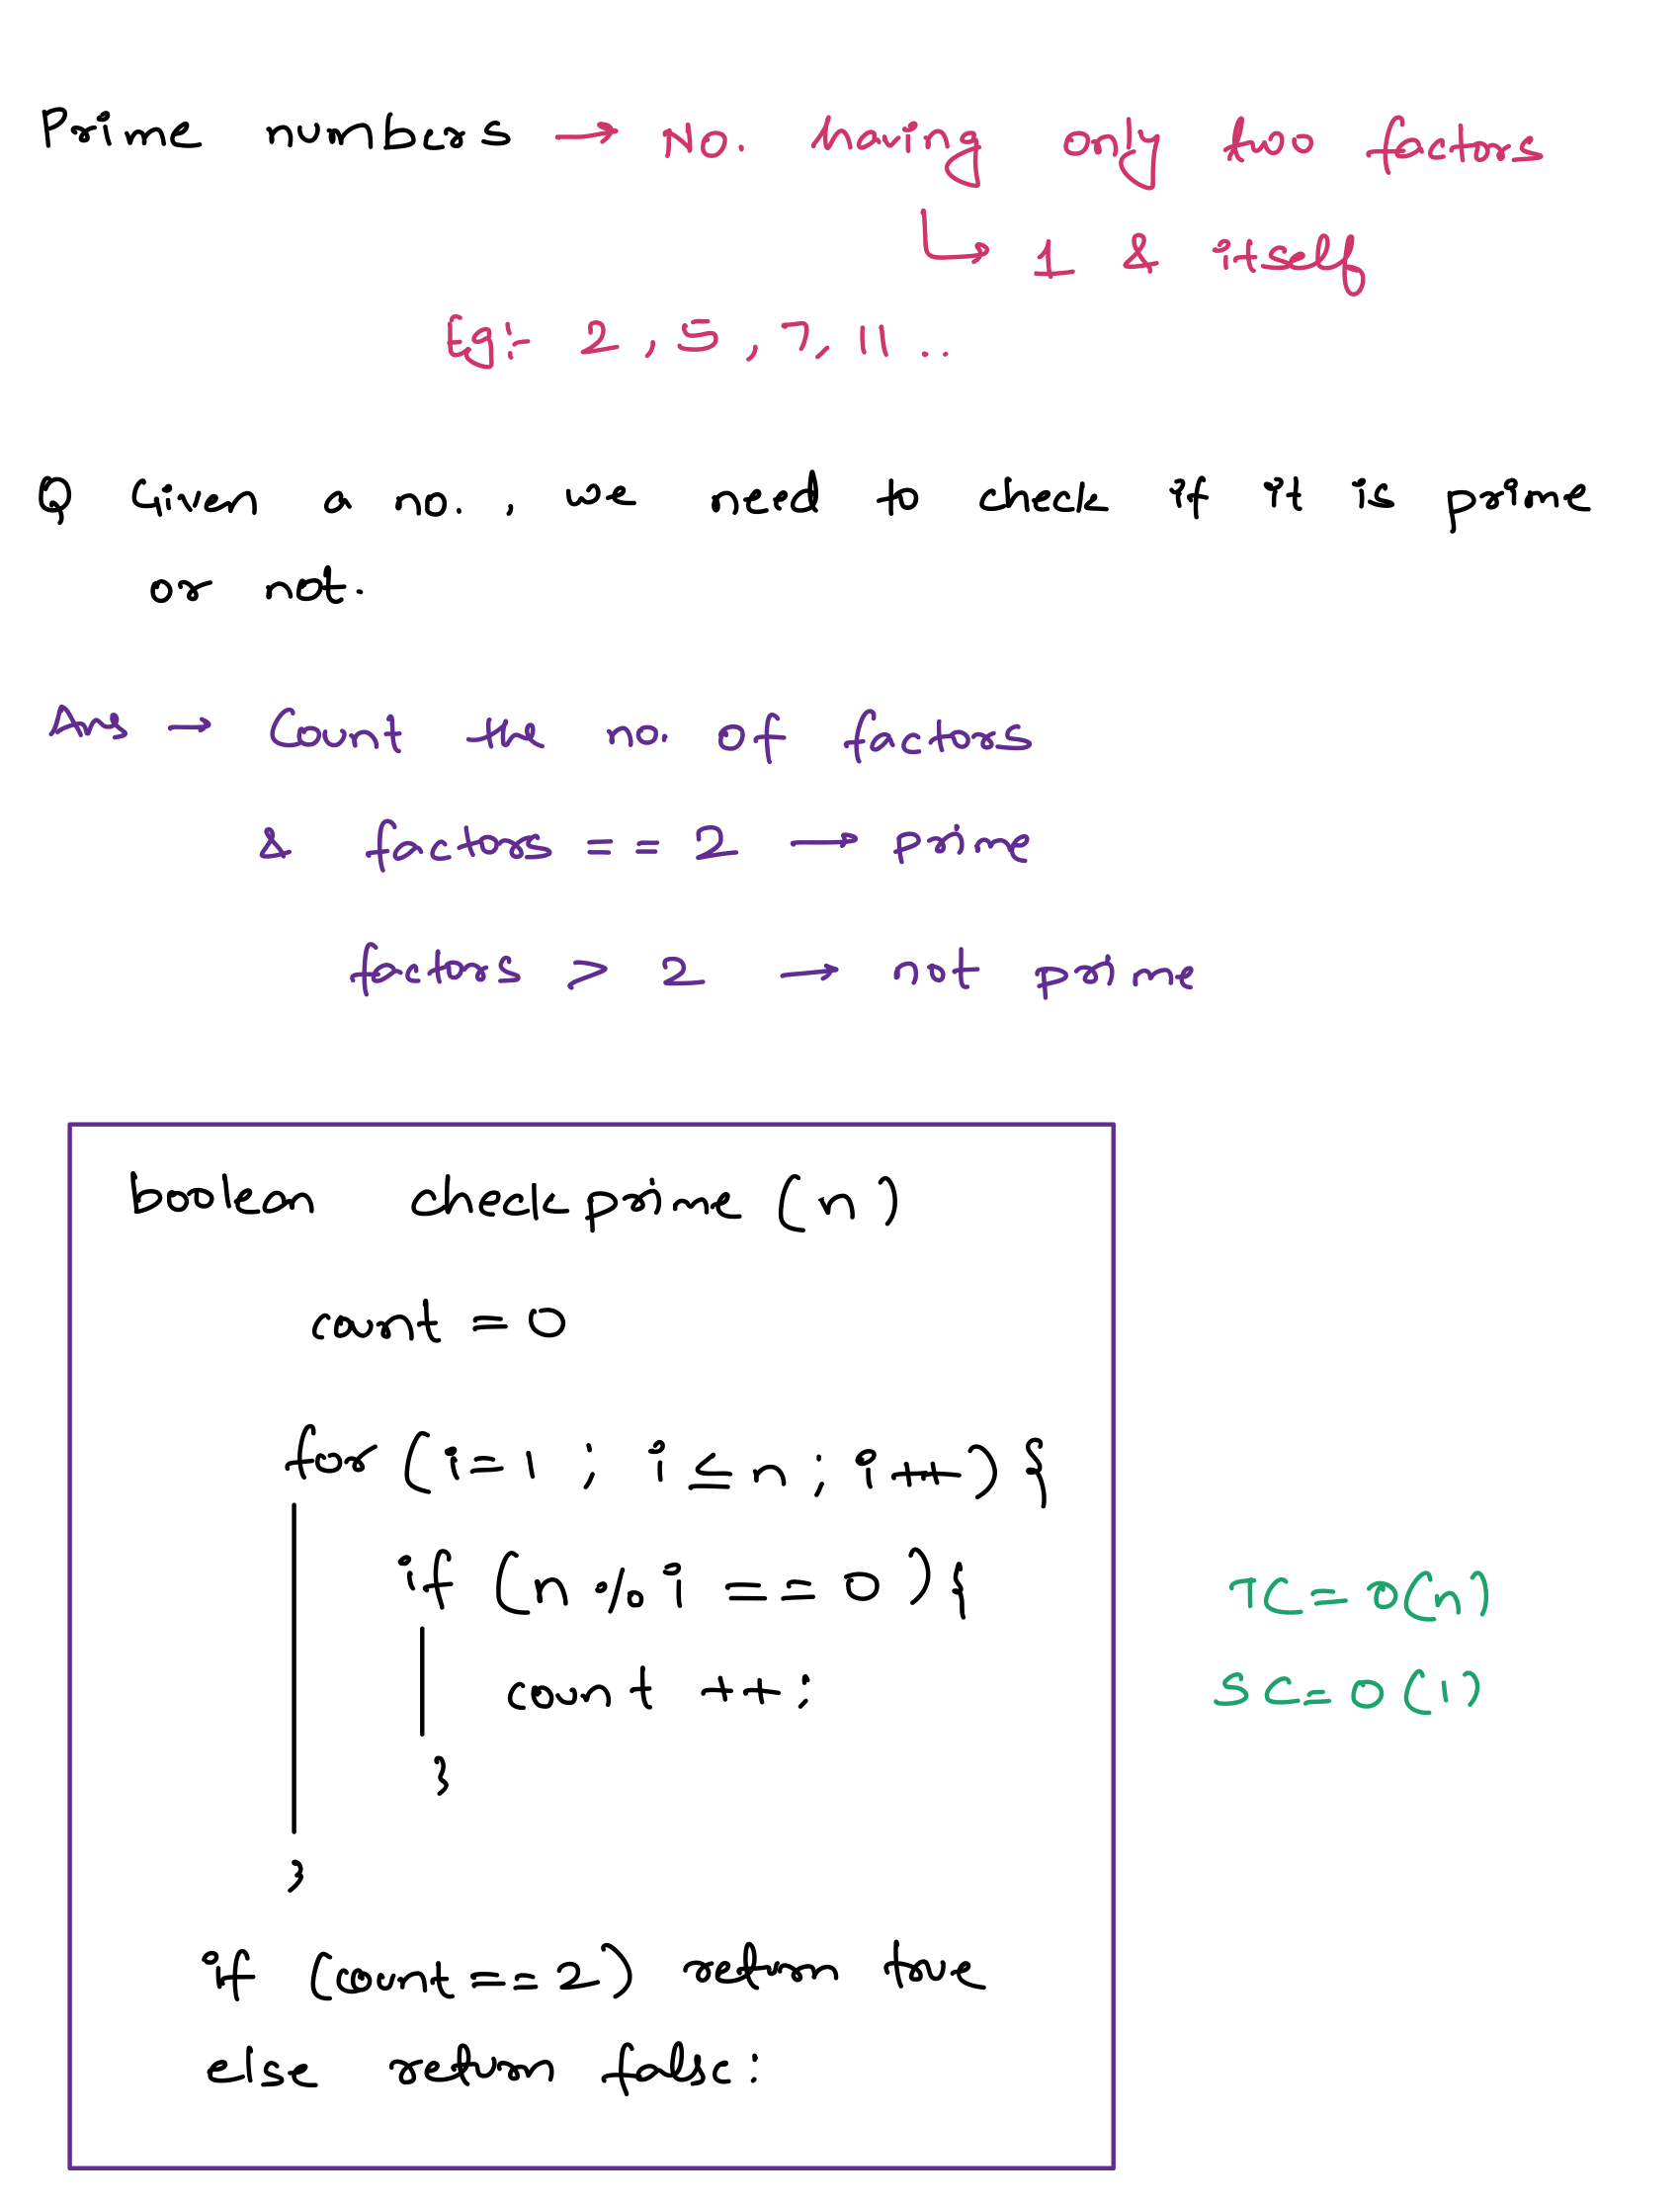 Prime numbers → No. having only two factors
↳ 1 & itself
Eg:- 2, 5, 7, 11 ..
Q Given a no. , we need to check if it is prime
or not.
Ans → Count the no. of factors
& factors == 2 → prime
factors > 2 → not prime
boolean checkprime (n)
count = 0
for (i=1 ; i ≤ n ; i++) {
if (n % i == 0) {
count ++;
}
}
TC = O(n)
SC = O(1)
if (count == 2) return true
else return false;